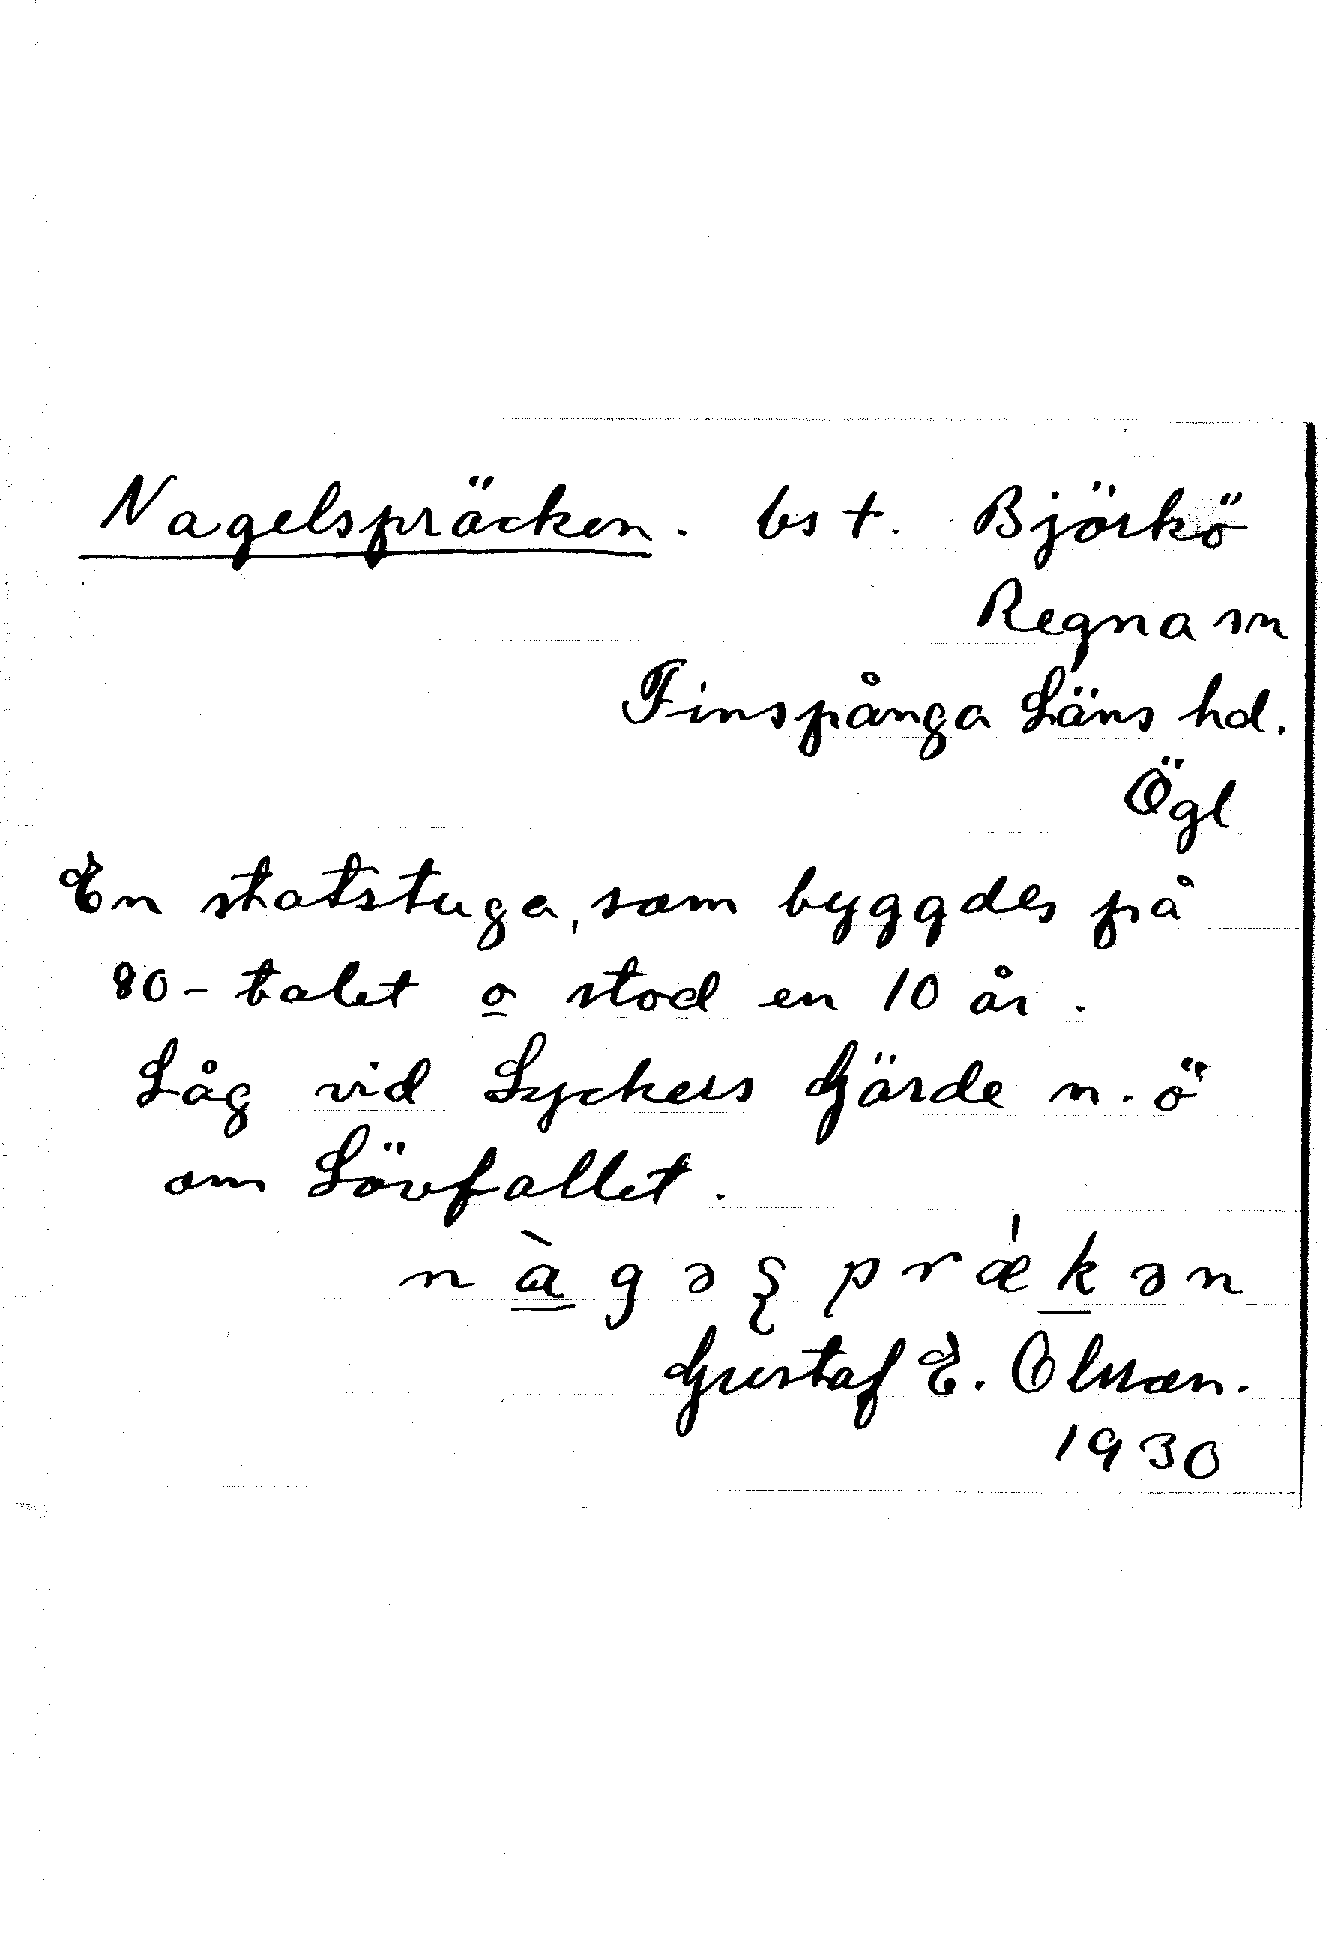 Nagelspräcken. bs †. Björkö
Regna sn
Finspånga Läns hd.
Ögl
En statstuga, som byggdes på
80-talet o stod en 10 år.
Låg vid Lyckers Gärde n.ö
om Lövfallet.
nàgəʂprǽkən
Gustaf E. Olsson.
1930